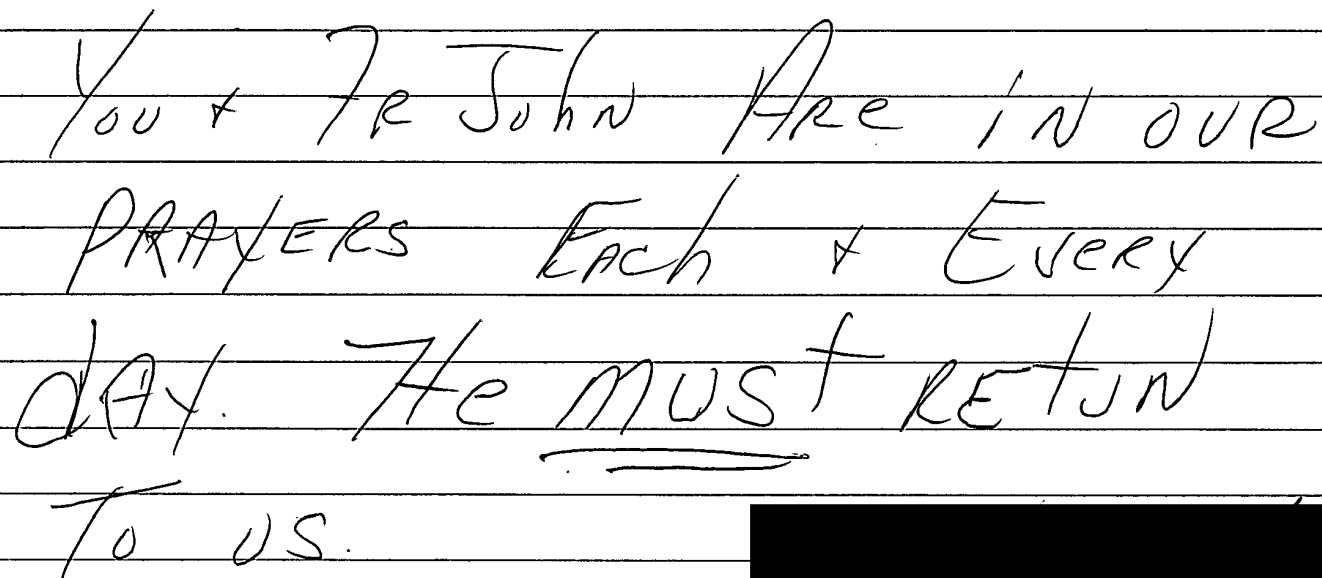 You & Fr John Are in our
PRAYERS Each & Every
dAy. He must RETUN
To US.